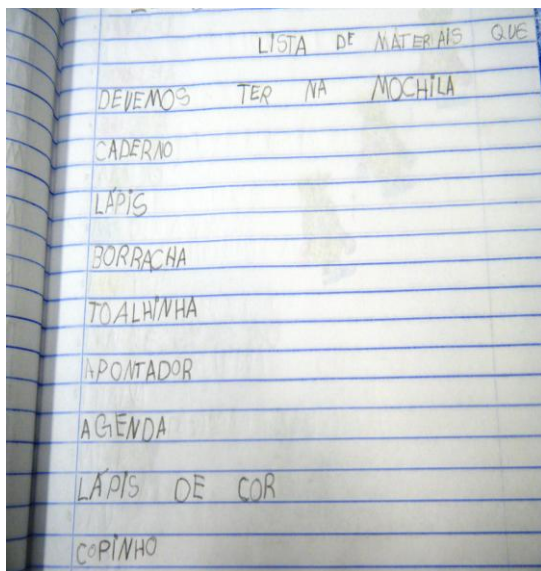 LISTA DE MATERIAIS QUE
DEVEMOS TER NA MOCHILA
CADERNO
LÁPIS
BORRACHA
TOALHINHA
APONTADOR
AGENDA
LÁPIS DE COR
COPINHO